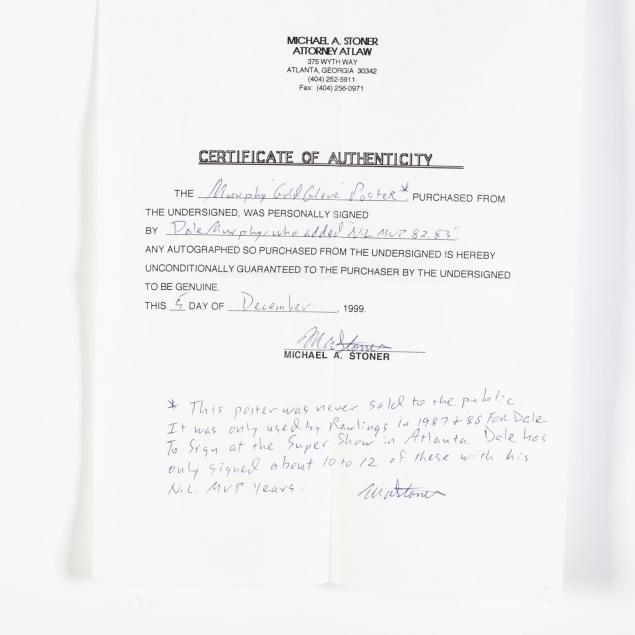 MICHAEL A. STONER
ATTORNEY AT LAW
375 WYTH WAY
ATLANTA, GEORGIA 30342
(404) 252-5911
Fax: (404) 256-0971
CERTIFICATE OF AUTHENTICITY
THE Murphy "Gold Glove" Poster*, PURCHASED FROM
THE UNDERSIGNED, WAS PERSONALLY SIGNED
BY Dale Murphy, who added "N.L. MVP 82, 83".
ANY AUTOGRAPHED SO PURCHASED FROM THE UNDERSIGNED IS HEREBY
UNCONDITIONALLY GUARANTEED TO THE PURCHASER BY THE UNDERSIGNED
TO BE GENUINE.
THIS 5 DAY OF December, 1999.
MAStoner
MICHAEL A. STONER
* This poster was never sold to the public.
It was only used by Rawlings in 1987 + 88 For Dale
To Sign at the Super Show in Atlanta. Dale has
only signed about 10 to 12 of these with his
N.L. MVP Years. MAStoner